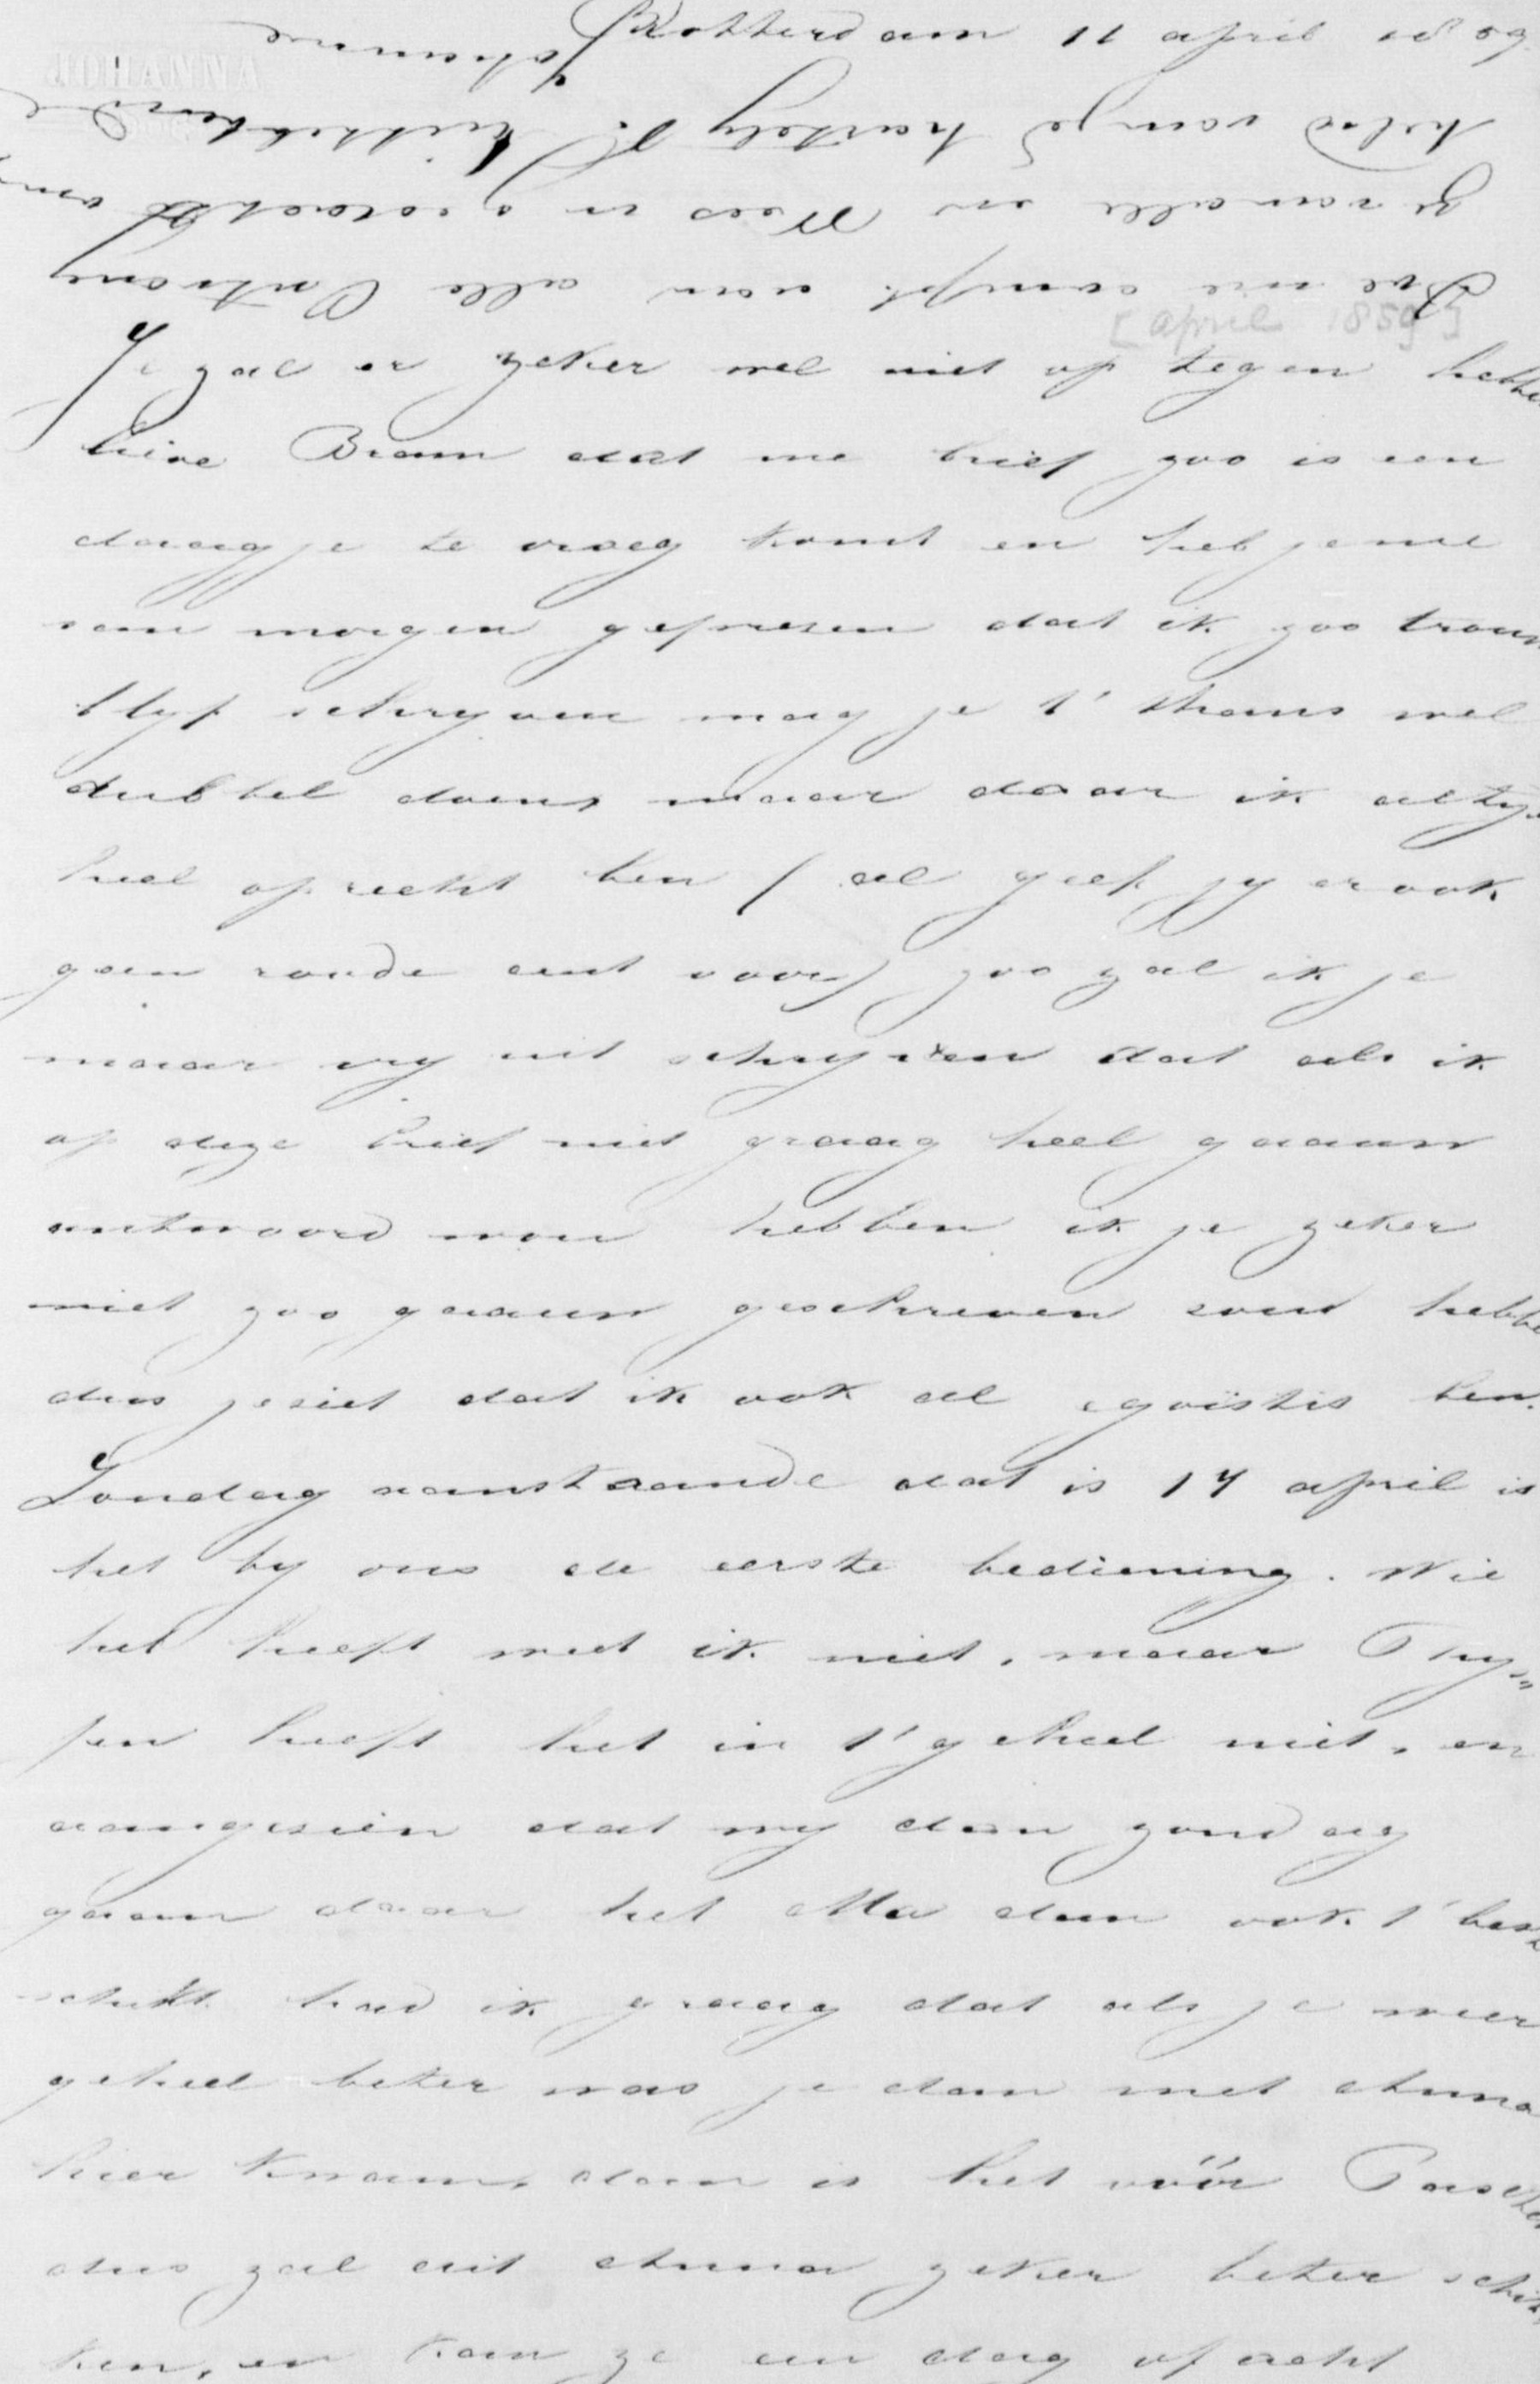 Rotterdam 11 april 1859
JOHANNA
[april 1859]
Je zal er zeker wel niet op tegen hebben
lieve Bram dat me brief zoo is een
daagje te vroeg komt en heb je me
van morgen geprezen dat ik zoo trouw
blyf schryven mag je t' thans wel
dubbel doen, maar daar ik altyd
heel oprecht ben (al geef jy er ook
geen roode cent voor) zoo zal ik je
maar vry uit schryven dat als ik
op deze brief niet graag heel gaauw
antwoord wou hebben ik je zeker
niet zoo gaauw geschreven zoud hebben
dus je siet dat ik ook al egoïstis ben.
Zondag aanstaande dat is 17 april is
het by ons de eerste bediening. Wie
het heeft weet ik niet, maar Thys=
sen heeft het in t' geheel niet, en
aangesien dat wy dan zondag
gaan daar het Ma dan ook t' best
schikt had ik graag dat als je weer
geheel beter was je dan met
hier kwam, dan is het vóór Paschen
dus zal uit zeker beter schik
ken, en kan ze een dag of acht
Bul me compl. aan alle Ontvang
ze van alle en Wees er gedacht en
hebed van je hartely Liefhebbende
Johanna